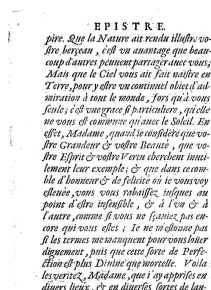 EPISTRE.
pire. Que la Nature ait rendu illustre vo-
stre berçeau, c'est vn auantage que beau-
coup d'autres péuuent partager auec vous;
Mais que le Ciel vous ait fait naistre en
Terre, pour y estre vn continuel obiet d'ad-
miration à tout le monde, fors qu'à vous
seule; c'est vne grace si particuliere, qu'elle
ne vous est commune qu'auec le Soleil. En
effet, Madame, quand ie considére que vo-
stre Grandeur & vostre Beauté, que vo-
stre Esprit & vostre Vertu cherchent inuti-
lement leur exemple; & que dans ce com-
ble d'honneur & de felicité où ie vous voy
esleuée, vous vous rabaissez iusques au
point d'estre insensible, & à l'vn & à
l'autre, comme si vous ne sçauiez pas en-
core qui vous estes; Ie ne m'estonne pas
si les termes me manquent pour vous loüer
dignement, puis que cette sorte de Perfe-
ction est plus Diuine que mortelle. Voila
les veritez, Madame, que i'ay apprises en
diuers lieux, & en diuerses sortes de lan-